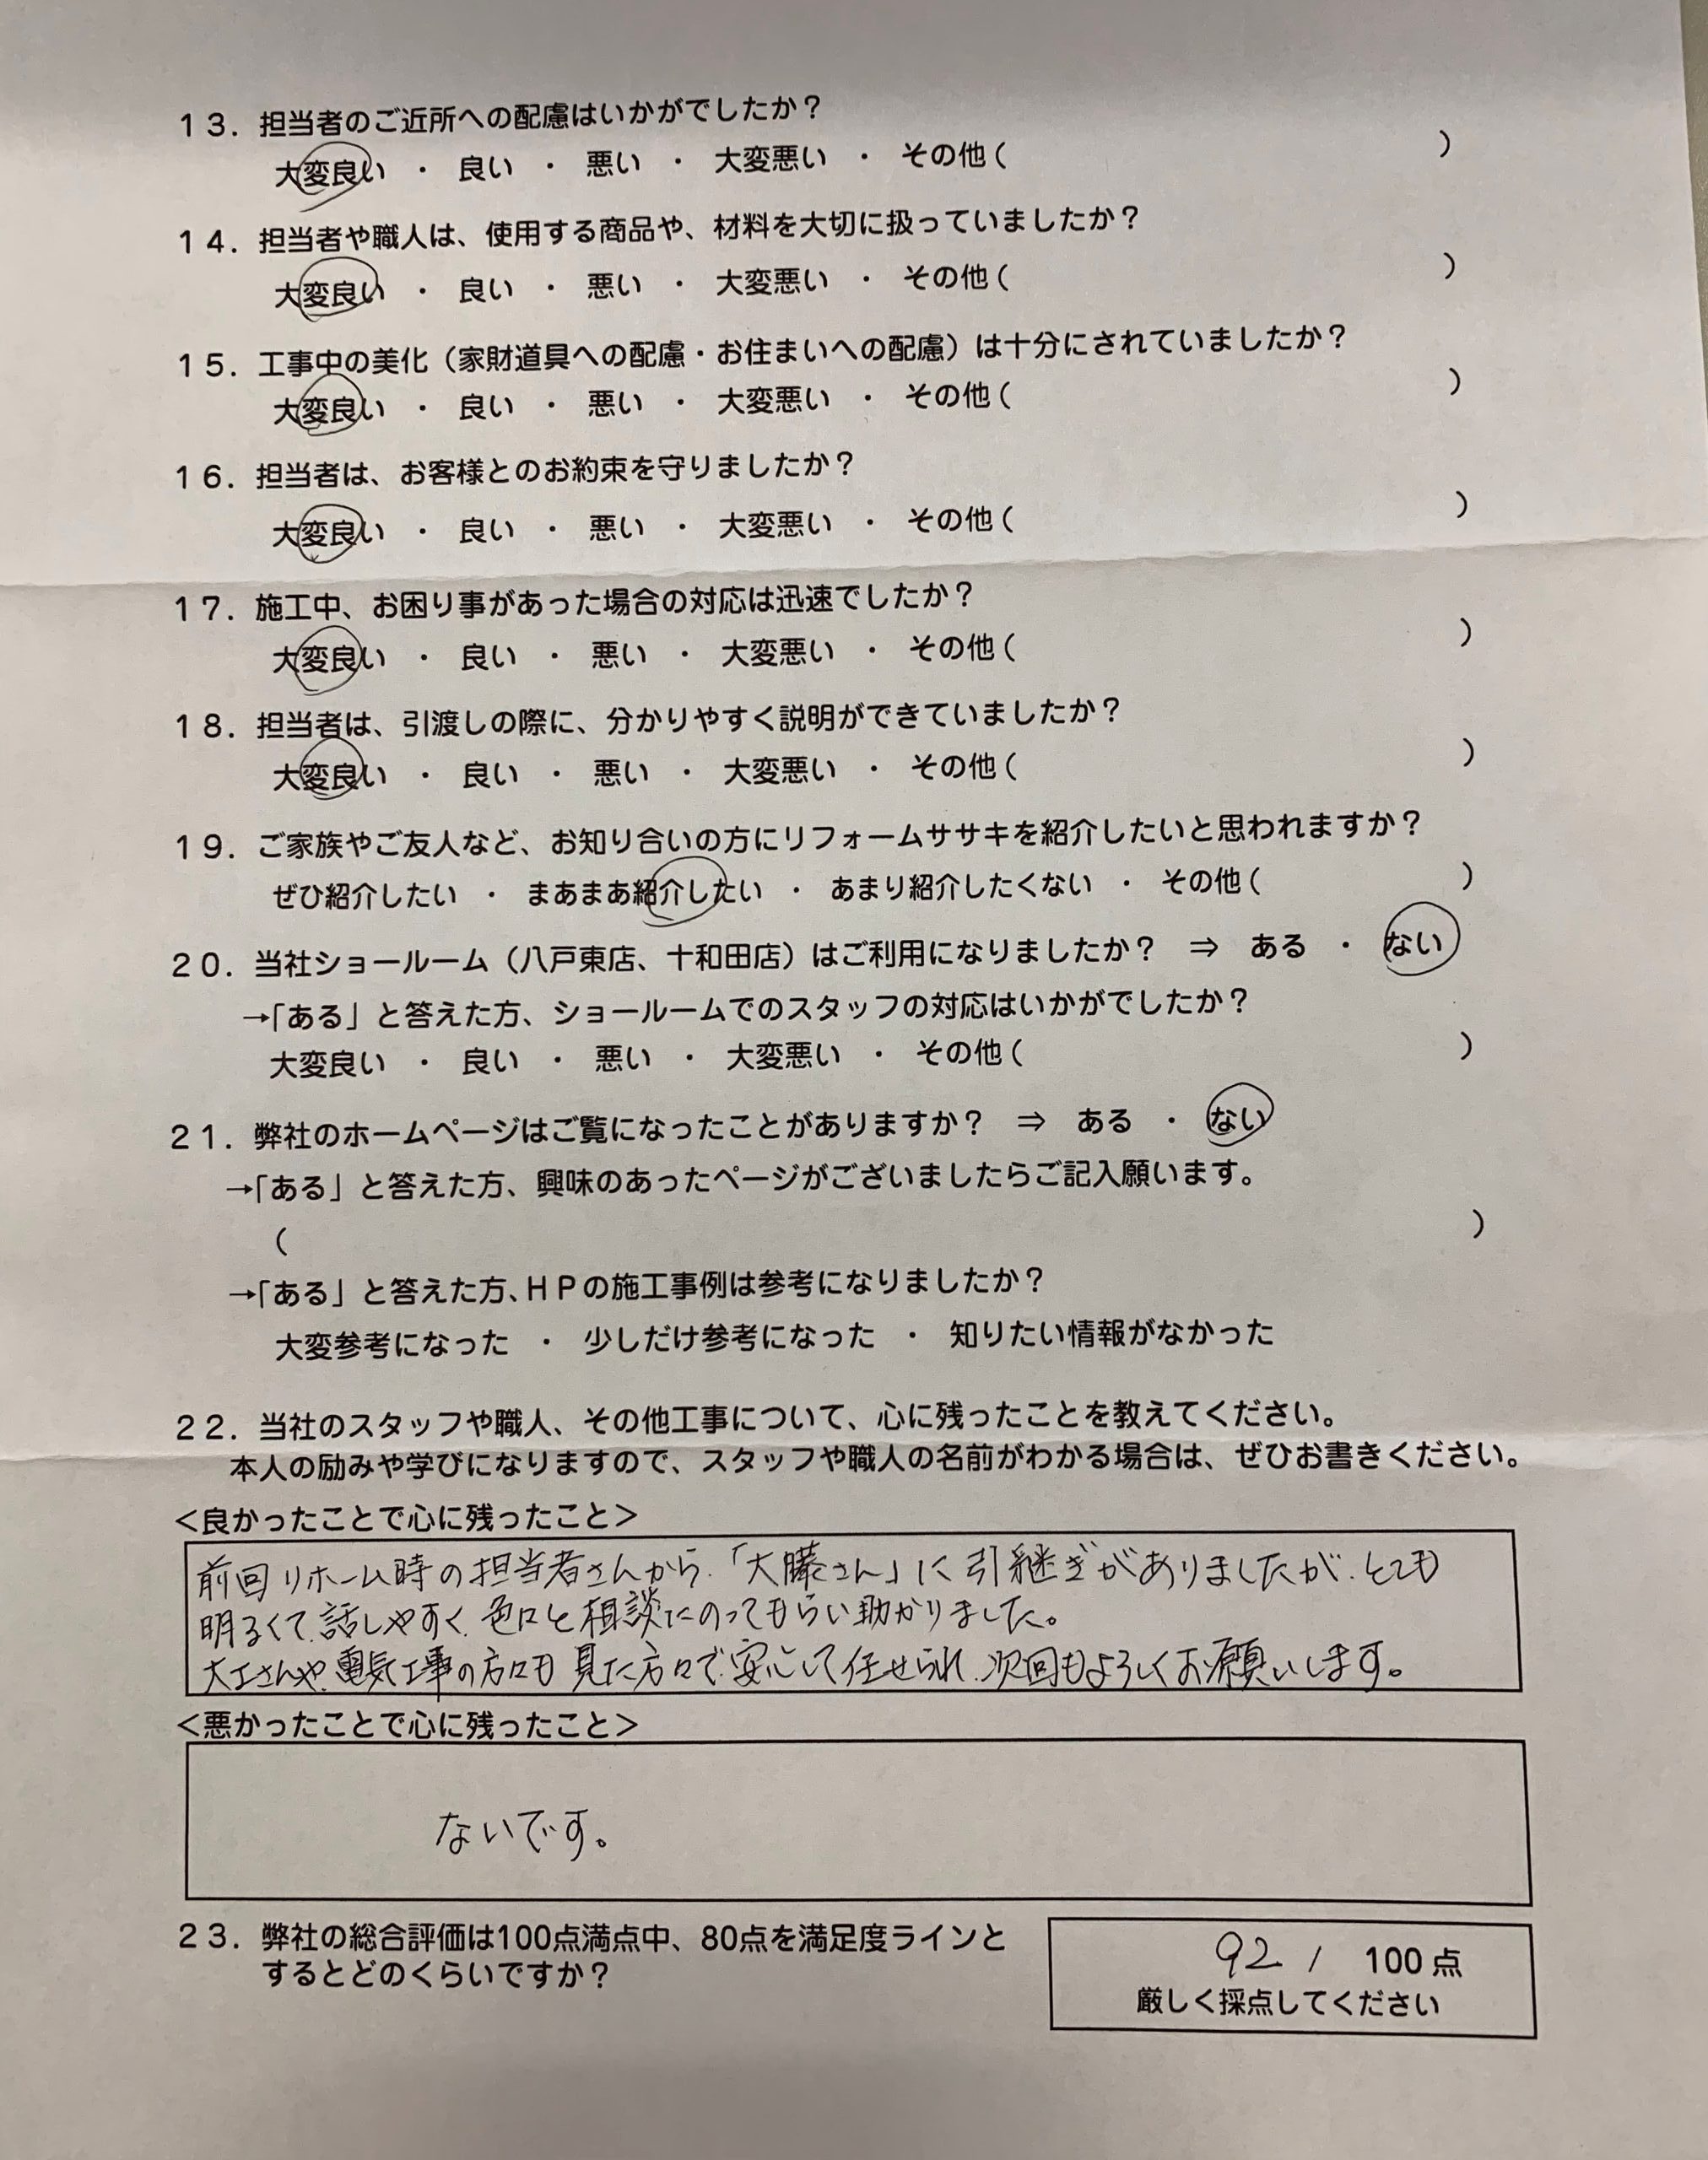 １３．担当者のご近所への配慮はいかがでしたか？
大変良い ・ 良い ・ 悪い ・ 大変悪い ・ その他（ ）
１４．担当者や職人は、使用する商品や、材料を大切に扱っていましたか？
大変良い ・ 良い ・ 悪い ・ 大変悪い ・ その他（ ）
１５．工事中の美化（家財道具への配慮・お住まいへの配慮）は十分にされていましたか？
大変良い ・ 良い ・ 悪い ・ 大変悪い ・ その他（ ）
１６．担当者は、お客様とのお約束を守りましたか？
大変良い ・ 良い ・ 悪い ・ 大変悪い ・ その他（ ）
１７．施工中、お困り事があった場合の対応は迅速でしたか？
大変良い ・ 良い ・ 悪い ・ 大変悪い ・ その他（ ）
１８．担当者は、引渡しの際に、分かりやすく説明ができていましたか？
大変良い ・ 良い ・ 悪い ・ 大変悪い ・ その他（ ）
１９．ご家族やご友人など、お知り合いの方にリフォームササキを紹介したいと思われますか？
ぜひ紹介したい ・ まあまあ紹介したい ・ あまり紹介したくない ・ その他（ ）
２０．当社ショールーム（八戸東店、十和田店）はご利用になりましたか？ ⇒ ある ・ ない
→「ある」と答えた方、ショールームでのスタッフの対応はいかがでしたか？
大変良い ・ 良い ・ 悪い ・ 大変悪い ・ その他（ ）
２１．弊社のホームページはご覧になったことがありますか？ ⇒ ある ・ ない
→「ある」と答えた方、興味のあったページがございましたらご記入願います。
（ ）
→「ある」と答えた方、ＨＰの施工事例は参考になりましたか？
大変参考になった ・ 少しだけ参考になった ・ 知りたい情報がなかった
２２．当社のスタッフや職人、その他工事について、心に残ったことを教えてください。
本人の励みや学びになりますので、スタッフや職人の名前がわかる場合は、ぜひお書きください。
＜良かったことで心に残ったこと＞
前回リホーム時の担当者さんから、「大藤さん」に引継ぎがありましたが、とても
明るくて、話しやすく、色々と相談にのってもらい助かりました。
大工さんや、電気工事の方々も見た方々で、安心して任せられ、次回もよろしくお願いします。
＜悪かったことで心に残ったこと＞
ないです。
２３．弊社の総合評価は100点満点中、80点を満足度ラインと
するとどのくらいですか？
92 / 100点
厳しく採点してください